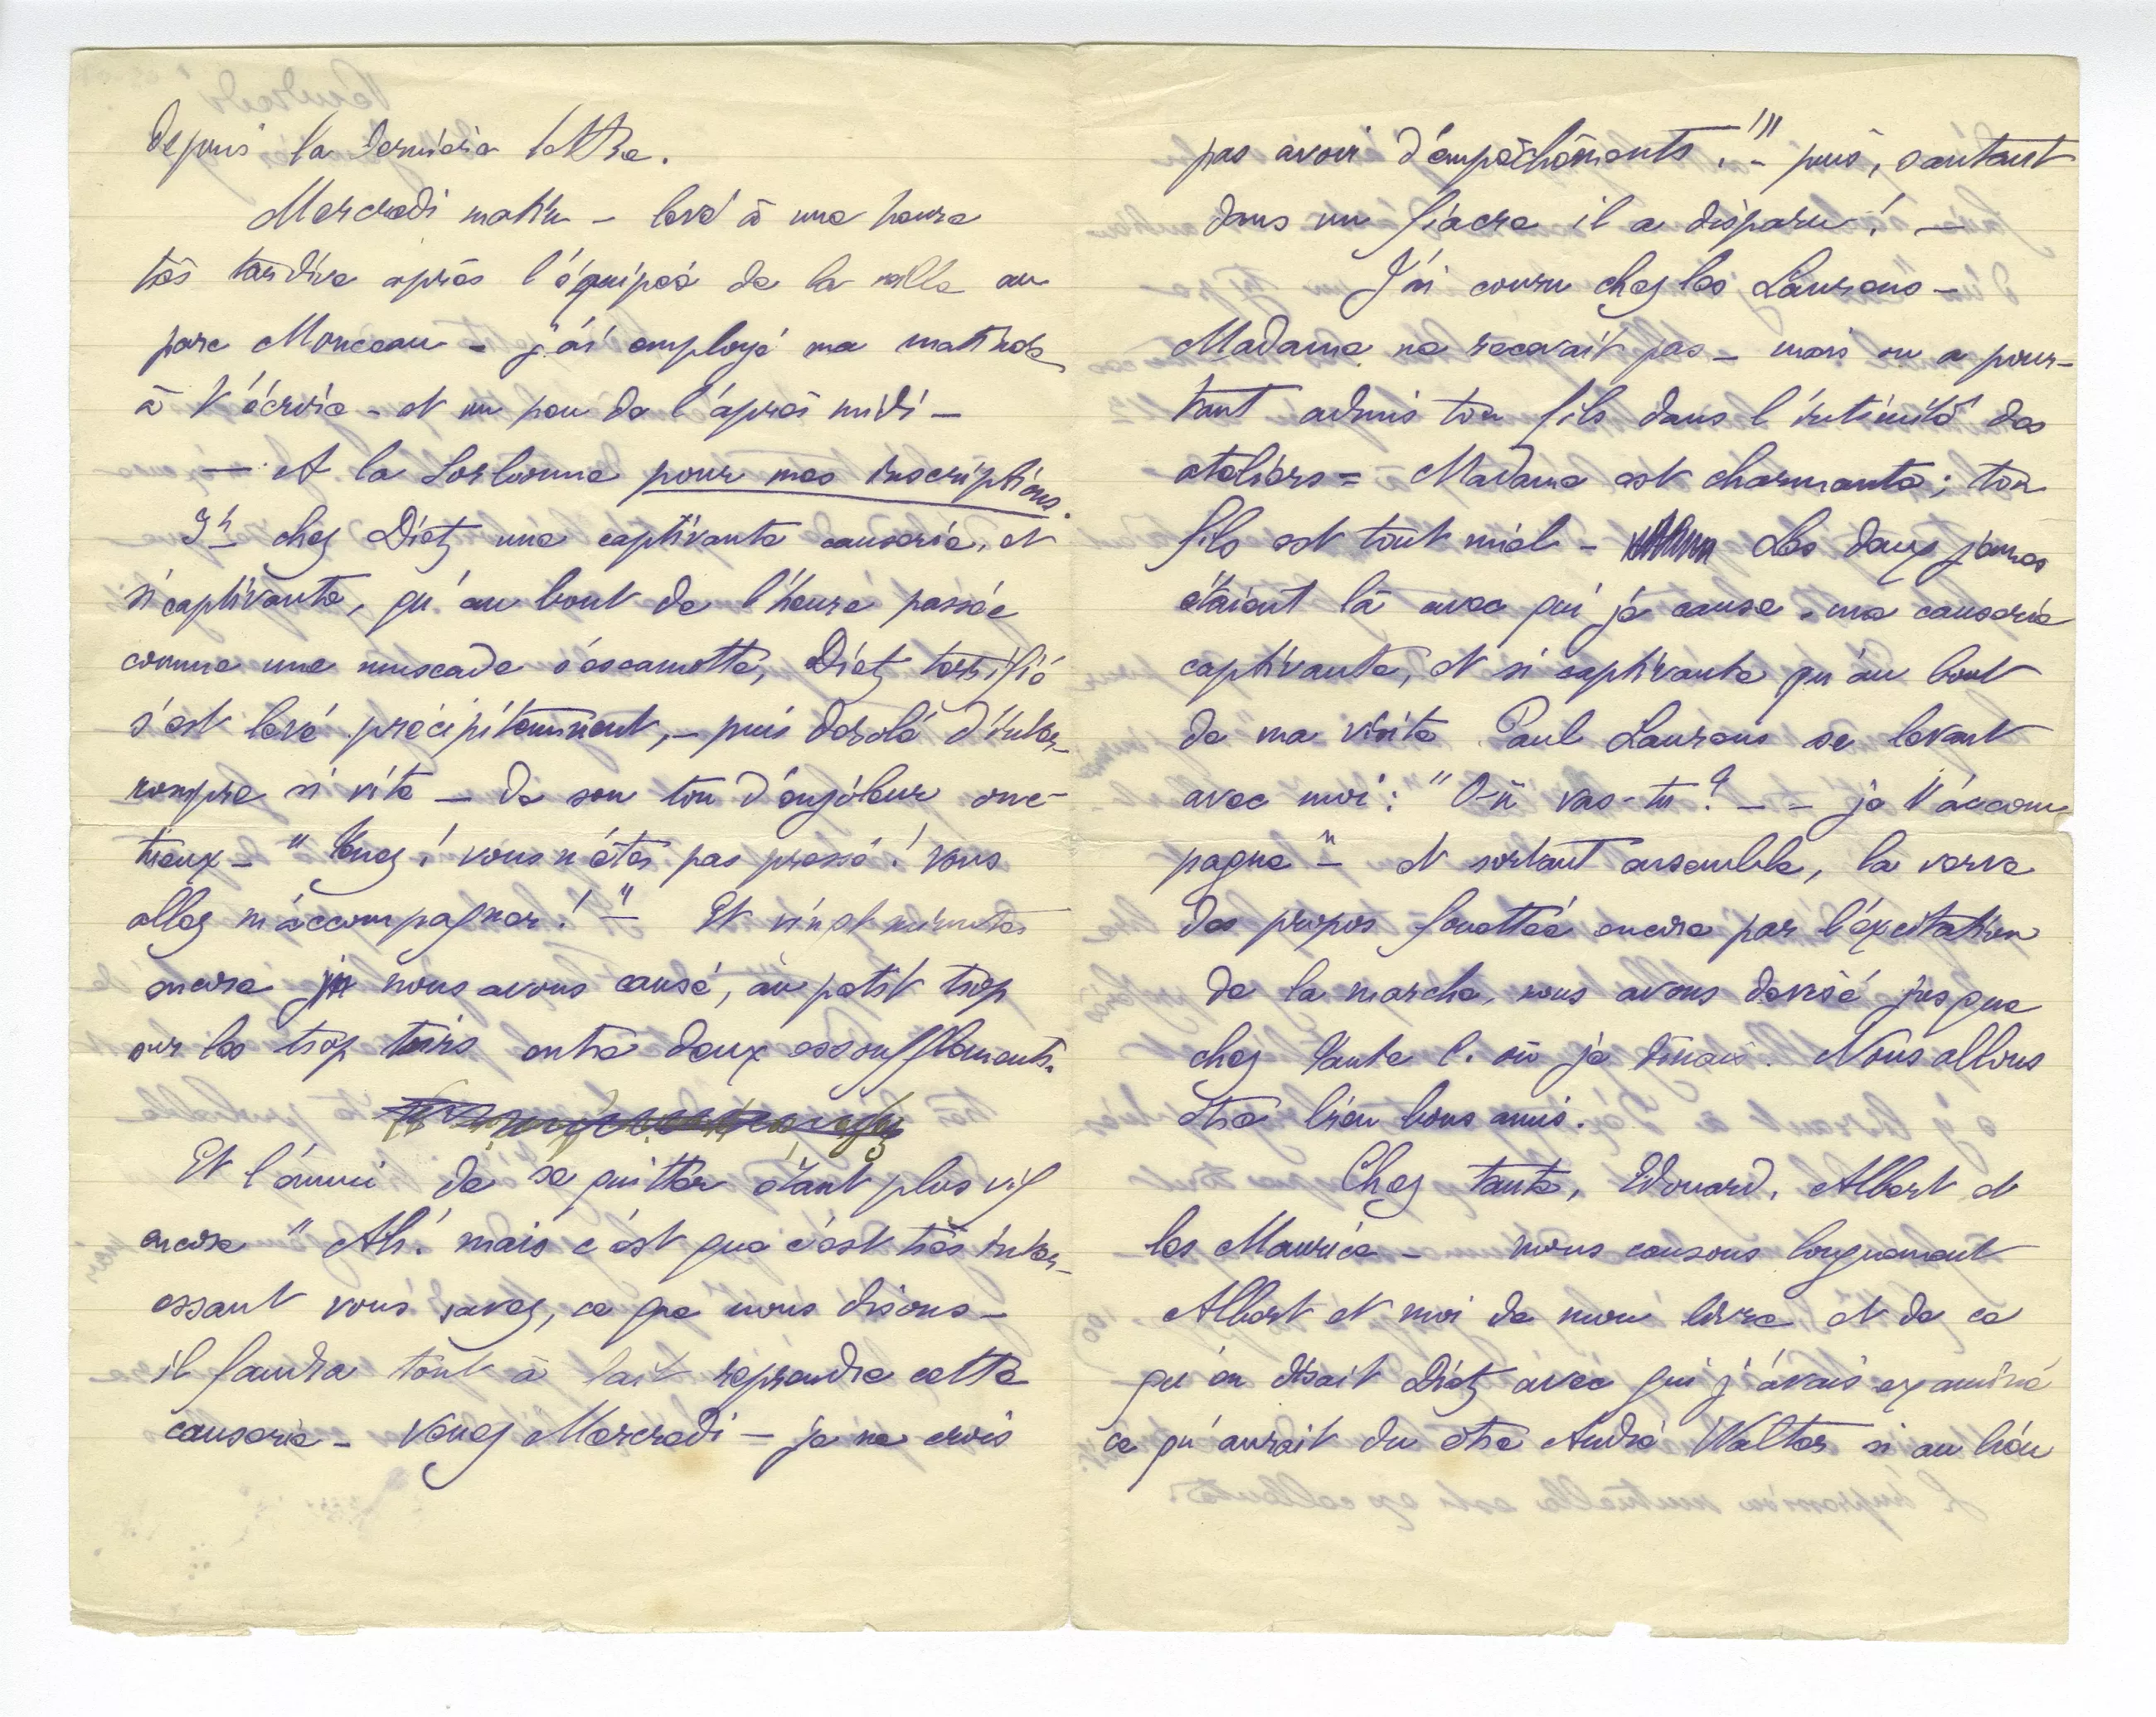 depuis ta dernière lettre.
Mercredi matin – levé à une heure
très tardive après l'équipée de la veille au
parc Monceau – j'ai employé ma matinée
à t'écrire – et un peu de l'après midi –
— A la Sorbonne pour mes inscriptions.
chez Dietz une captivante causerie, et
si captivante, qu'au bout de l'heure passée
comme une muscade s'escamotte, Dietz terrifié
s'est levé précipitemment, – puis désolé d'inter-
rompre si vite – de son ton d'enjôleur onc-
tueux – "Tenez! vous n'êtes pas pressé! vous
allez m'accompagner!" – Et vingt minutes
encore nous avons causé, au petit trop
sur les trop toirs entre deux essoufflements.
Et l'ennui de se quitter étant plus vif
encore "Ah! mais c'est que c'est très inter-
essant vous savez, ce que nous disons –
il faudra tout à fait reprendre cette
causerie – Venez Mercredi – je ne crois
pas avoir d'empêchements!" – puis, sautant
dans un fiacre il a disparu! —
J'ai couru chez les Laurens –
Madame ne recevait pas – mais on a pour-
tant admis ton fils dans l'intimité des
ateliers = Madame est charmante; ton
fils est tout miel – Les deux jeunes
étaient là avec qui je cause. une causerie
captivante, et si captivante qu'au bout
de ma visite Paul Laurens se levant
avec moi: "Où vas-tu? – – je t'accom
pagne" – et sortant ensemble, la verve
des propos fouettée encore par l'excitation
de la marche, nous avons devisé jusque
chez tante C. où je dînais. Nous allons
être bien bons amis.
Chez tante, Edouard, Albert et
les Maurice – nous causons longuement
Albert et moi de mon livre et de ce
qu'en disait Dietz avec qui j'avais examiné
ce qu'aurait du être André Walter si au lieu